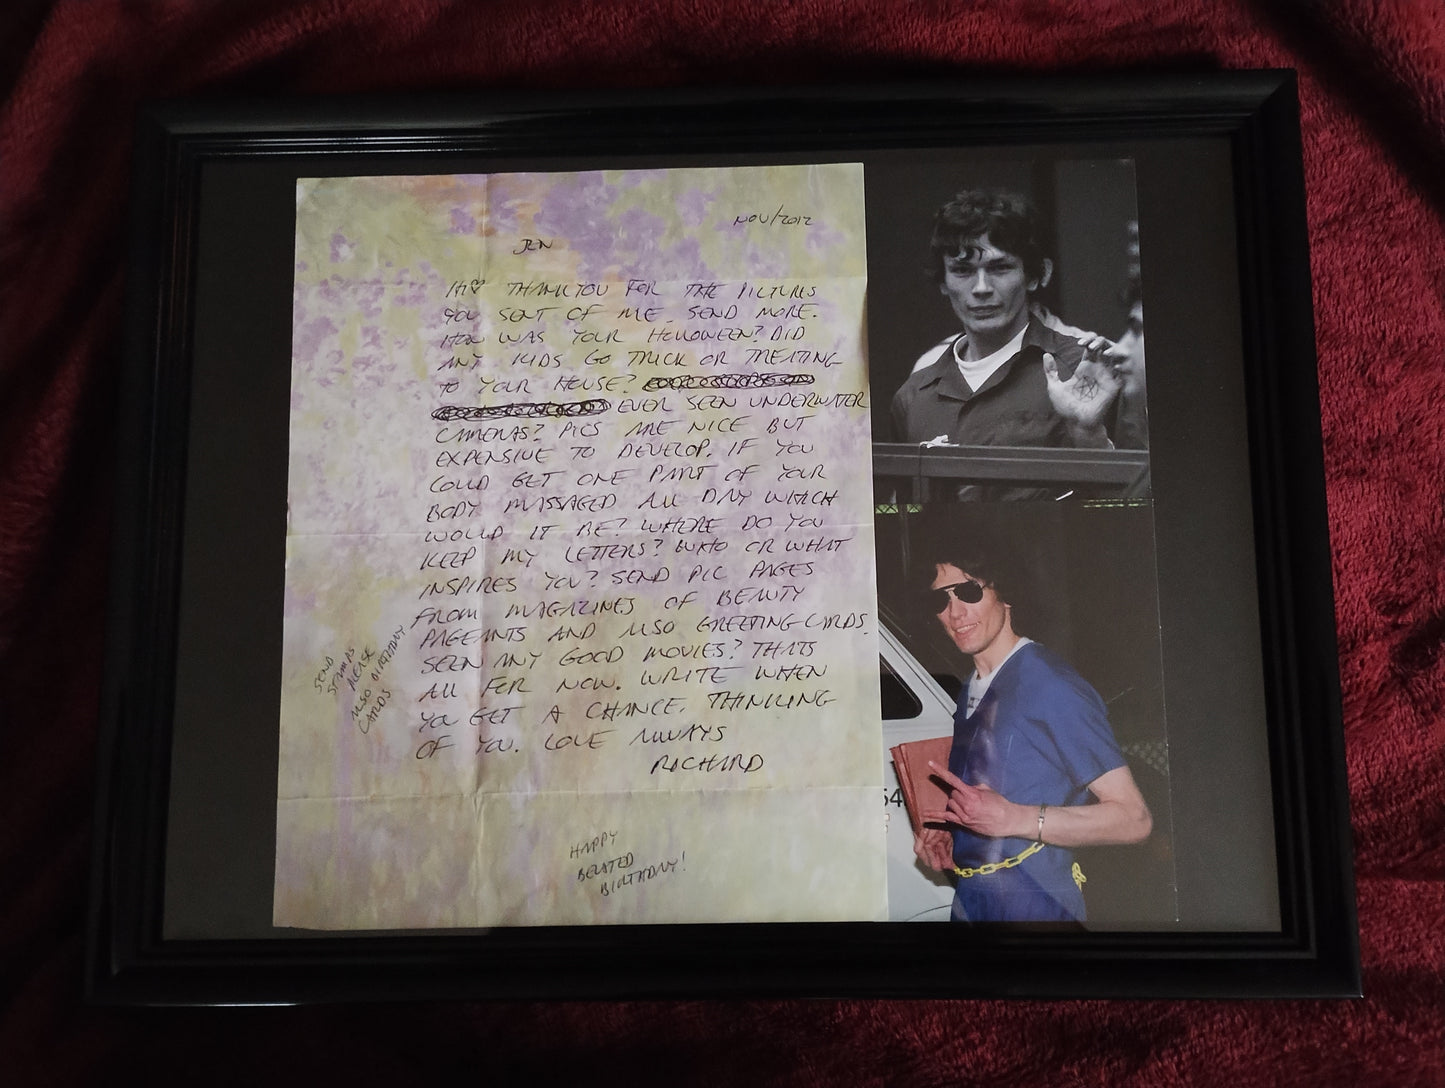 NOV/2012
JEN
HI♡ THANK YOU FOR THE PICTURES
YOU SENT OF ME. SEND MORE.
HOW WAS YOUR HOLLOWEEN? DID
ANY KIDS GO TRICK OR TREATING
TO YOUR HOUSE?
EVER SEEN UNDERWATER
CAMERAS? PICS ARE NICE BUT
EXPENSIVE TO DEVELOP. IF YOU
COULD GET ONE PART OF YOUR
BODY MASSAGED ALL DAY WHICH
WOULD IT BE? WHERE DO YOU
KEEP MY LETTERS? WHO OR WHAT
INSPIRES YOU? SEND PIC PAGES
FROM MAGAZINES OF BEAUTY
PAGEANTS AND ALSO GREETING CARDS.
SEEN ANY GOOD MOVIES? THATS
ALL FOR NOW. WRITE WHEN
YOU GET A CHANCE. THINKING
OF YOU. LOVE ALWAYS
RICHARD
SEND
STAMPS
PLEASE
ALSO BIRTHDAY
CARDS
HAPPY
BELATED
BIRTHDAY!
54